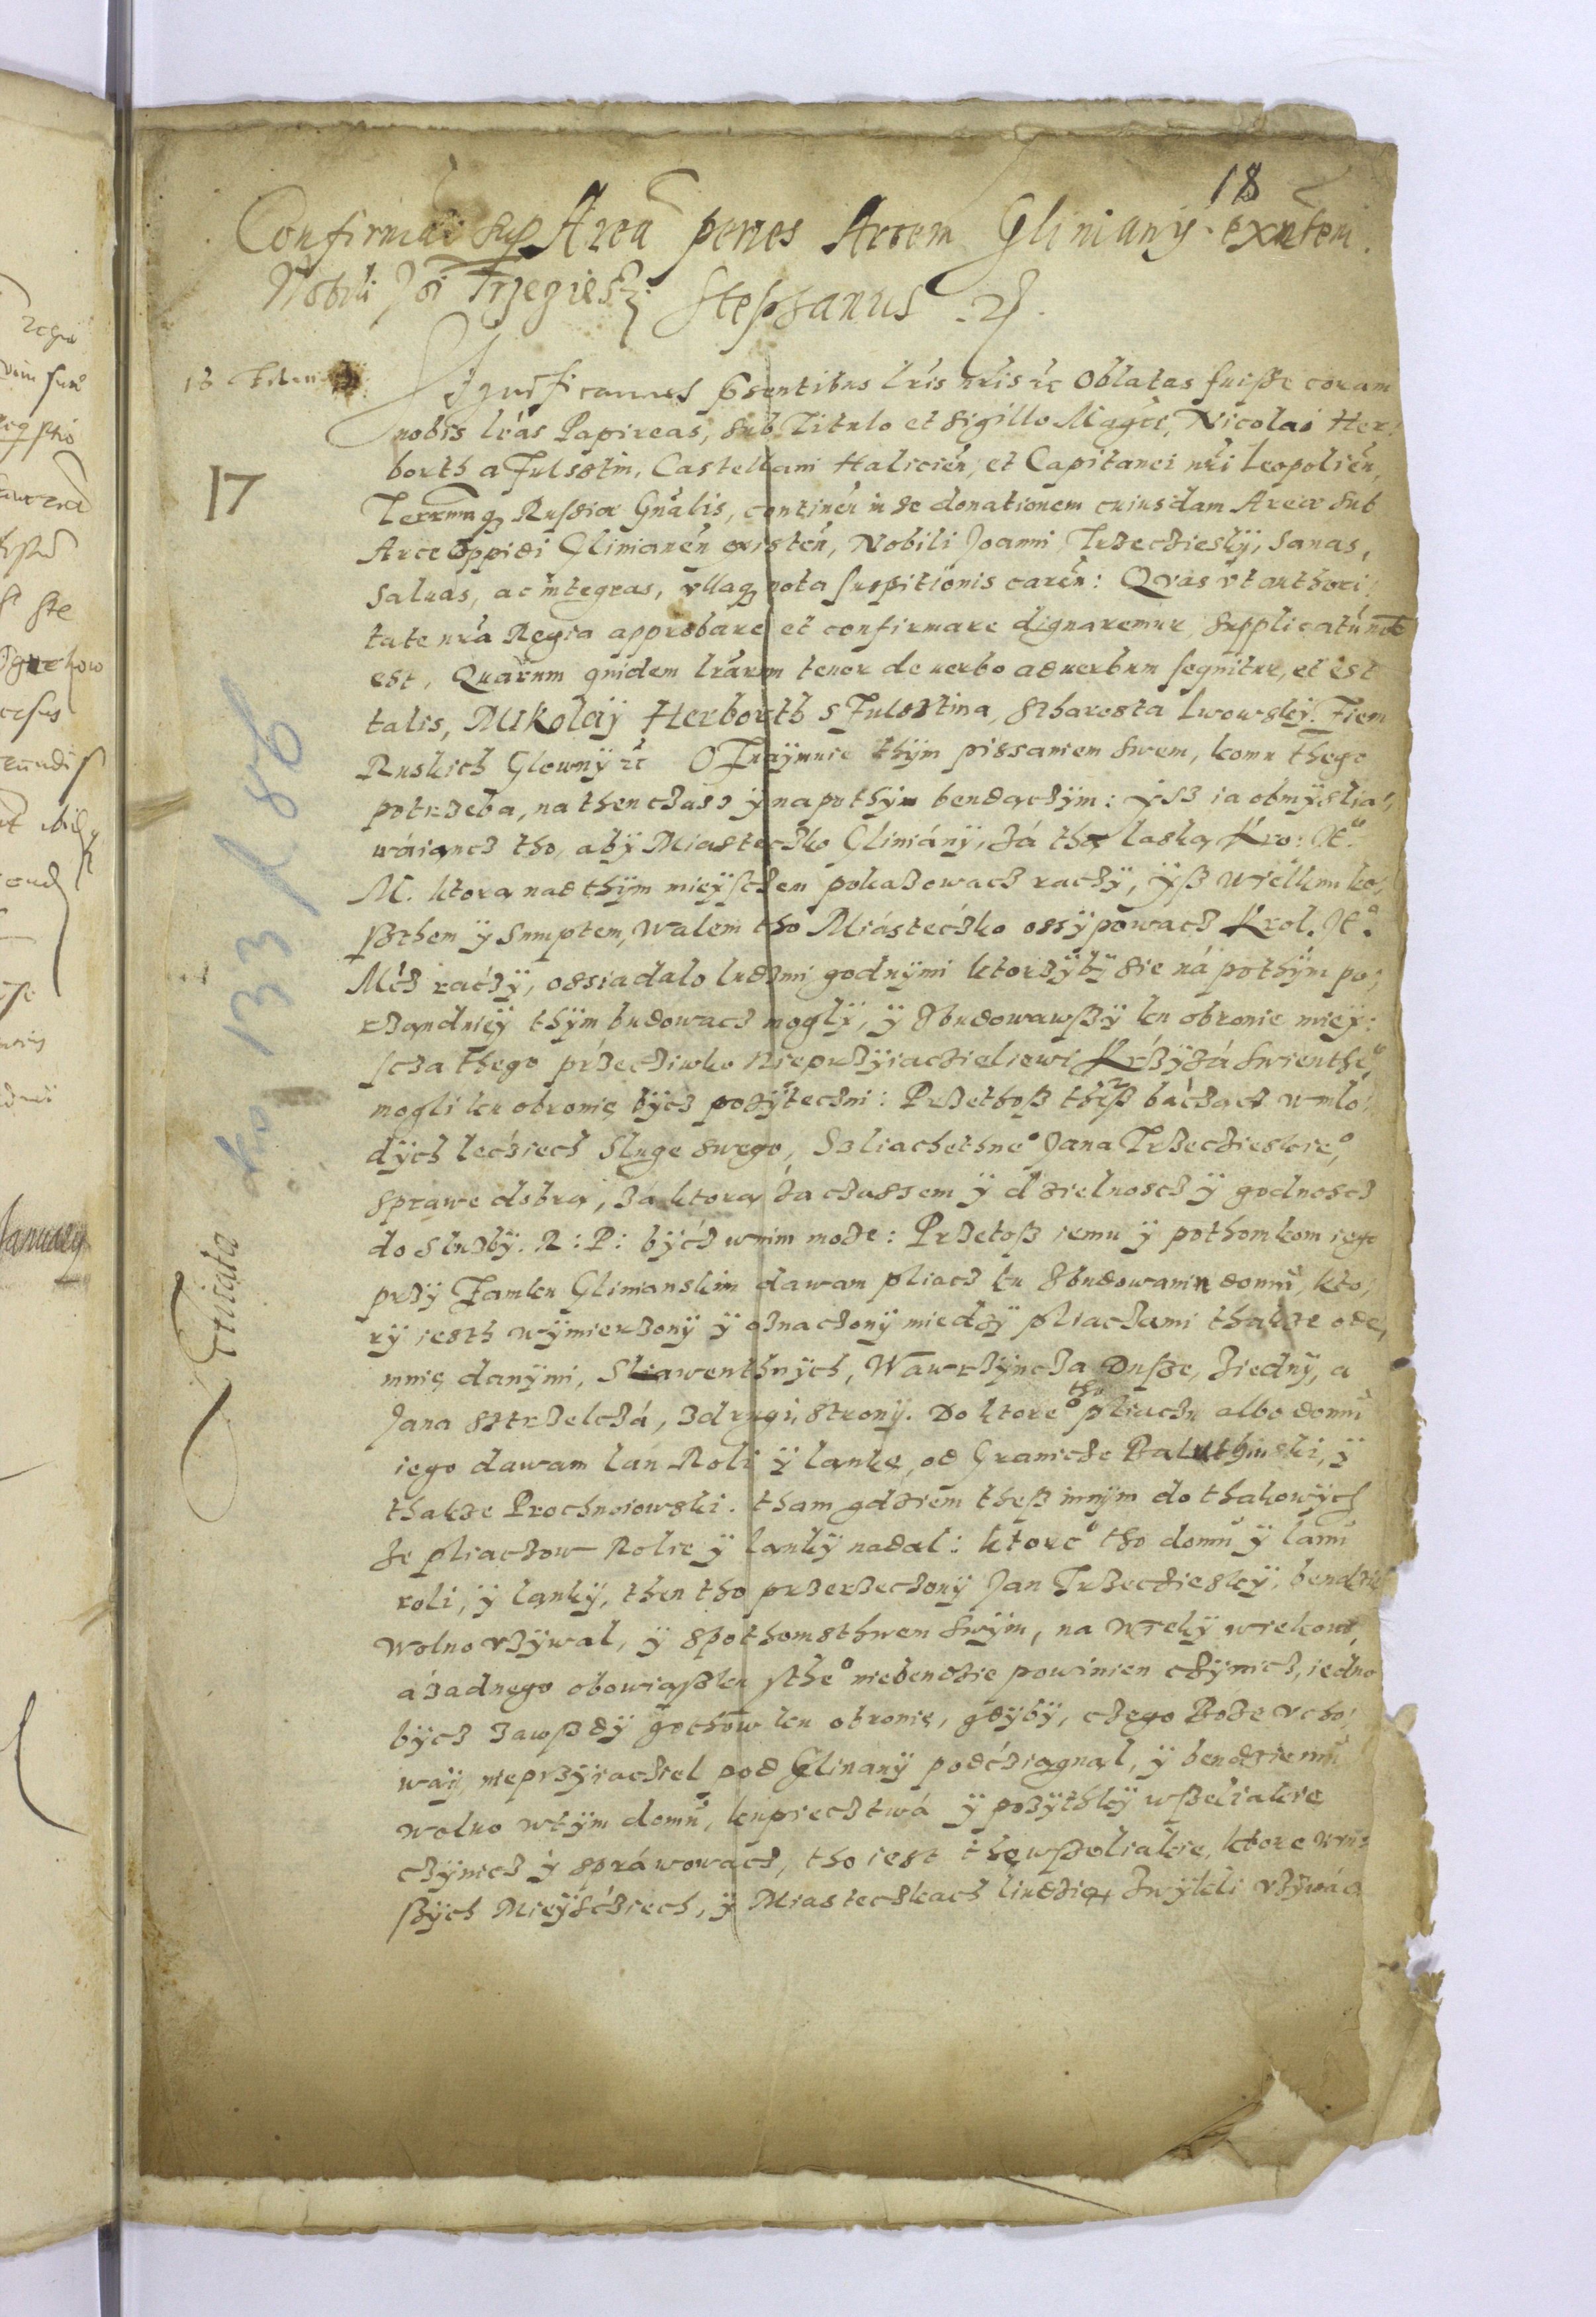 18
Confirmatio sup Area penes Arcem Gliniany exnten.
Nobili Joi Trzeciesky
Stephanus
Significamus pntibus lris nris etc Oblatas fuisse coram
nobis lras Papireas, sub Titulo et sigillo Magci, Nicolai Her:
17
borth a Fulsstin, Castellani Halicien, et Capitanei nri Leopolien,
Terrarumq Russiæ Gnalis, continen in se donationem cuiusdam Areæ sub
Arce oppidi Glinianen existen, Nobili Joanni Trzecziesky, sanas,
saluas, ac integras, vllaq nota suspitionis caren: Qvas vt authori:
tate nra Regia approbare et confirmare dignaremur, supplicatu nob
est, Quarum quidem lrarum tenor de uerbo ad uerbum sequitur, et est
talis, Mikolaÿ Herborth s Fulsztina, Stharosta Lwowskÿ, Ziem
Ruskich Glownÿ etc OZnaymuie thÿm pissaniem swem, komu thego
potrzeba, na then czass ÿ na pothÿm bendaczÿm: ÿsz ia obmÿslia:
waiancz tho, abÿ Miasteczko Glinianÿ, za tha laska Kro: Je°
M. ktora nad thÿm mieÿsczem pokazowacz raczÿ, ÿß wielkim ko:
ßthem ÿ sumptem, walem tho Miasteczko ossÿpowacz Krol. Je°
Mcz raczÿ, ossiadalo ludzmi godnÿmi ktorzÿbÿ sie na pothÿm po:
rzandnieÿ thÿm budowacz moglÿ, ÿ zbudowawßÿ ku obronie mieÿ:
scza thego przecziwko nieprzÿiaczieliewi Krzÿza swienthe°
mogli ku obronie bÿcz pozÿteczni: Przethoß theß baczacz w mlo:
dÿch lecziech Sluge swego, Szliachethne° Jana Trzeczieskie°,
sprawe dobra, za ktora za czassem ÿ dzielnoscz ÿ godnoscz
do sluzbÿ. R: P: bÿcz w nim moze: Przetoß iemu ÿ pothomkom iego
przÿ Zamku Glinianskim dawam pliacz ku zbudowaniu domu, kto:
rÿ iesth wÿmierzonÿ ÿ oznaczonÿ miedzÿ pliaczami thakze ode
mnie danÿmi, Sliawenthnÿch, Wawrzÿncza Dusze, ziednÿ, a
Jana sztrzelcza, z drugi, stronÿ. Do ktore° tho pliaczu albo domu
iego dawam lan Roli ÿ lanke, od Granicze Baluthinski, ÿ
thakze Prochnoiowski. tham gdziem theß innÿm do thakowÿch
ze pliaczow Rolie ÿ lankÿ nadal: ktore° tho domu ÿ lanu
roli, ÿ lankÿ, then tho przerzeczonÿ Jan Trzeczieskÿ, bendzie
wolno vzÿwal, ÿ z pothomsthwem swÿm, na wiekÿ wiekow,
a zadnego obowiaßku sthe° niebendzie powinien czÿnicz, iedno
bÿcz zawßdÿ gothow ku obronie, gdÿbÿ, czego Boze vcho:
waÿ, nieprzÿiacziel pod Glinanÿ podcziagnal, ÿ bendzie mu
wolno w tÿm domu, kupiecztwa ÿ pozÿthkÿ wßeliakie
czÿnicz ÿ sprawowacz, tho iest the wßeliakie, ktore w in
ßÿch Mieÿscziech, ÿ Miasteczkach liudzie zwÿkli vzÿwac